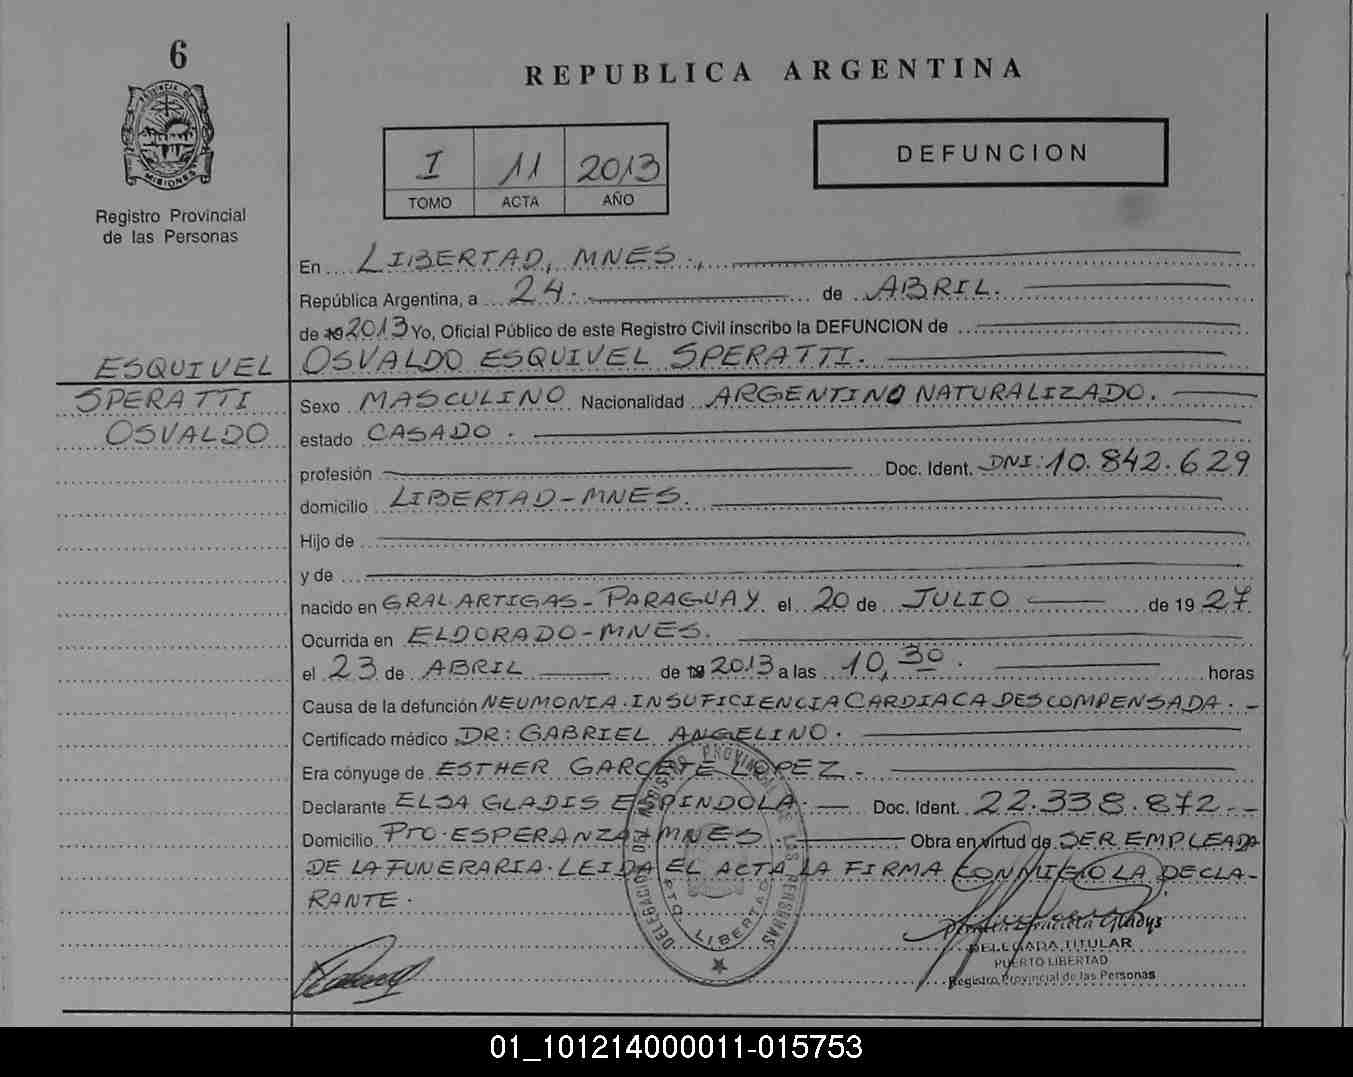 6
REPUBLICA ARGENTINA
PROVINCIA DE
MISIONES
Registro Provincial
de las Personas
I 11 2013
TOMO ACTA AÑO
DEFUNCION
En LIBERTAD, MNES.,
República Argentina, a 24. de ABRIL.
de 19 2013 Yo, Oficial Público de este Registro Civil inscribo la DEFUNCION de
OSVALDO ESQUIVEL SPERATTI.
ESQUIVEL
SPERATTI
OSVALDO
Sexo MASCULINO Nacionalidad ARGENTINO NATURALIZADO.
estado CASADO.
profesión Doc. Ident. DNI: 10.842.629
domicilio LIBERTAD-MNES.
Hijo de
y de
nacido en GRAL.ARTIGAS-PARAGUAY el 20 de JULIO de 19 27
Ocurrida en ELDORADO-MNES.
el 23 de ABRIL de 19 2013 a las 10,30. horas
Causa de la defunción NEUMONIA.INSUFICIENCIA CARDIACA DESCOMPENSADA.-
Certificado médico DR: GABRIEL ANGELINO.
Era cónyuge de ESTHER GARCETE LOPEZ.
Declarante ELSA GLADIS ESPINDOLA. Doc. Ident. 22.338.872.-
Domicilio PTO.ESPERANZA-MNES. Obra en virtud de SER EMPLEADA
DE LA FUNERARIA.LEIDA EL ACTA LA FIRMA CONMIGO LA DECLA-
RANTE.
DELEGACION DEL REGISTRO PROVINCIAL DE LAS PERSONAS
PTO. LIBERTAD
Gladys
DELEGADA TITULAR
PUERTO LIBERTAD
Registro Provincial de las Personas
01_101214000011-015753